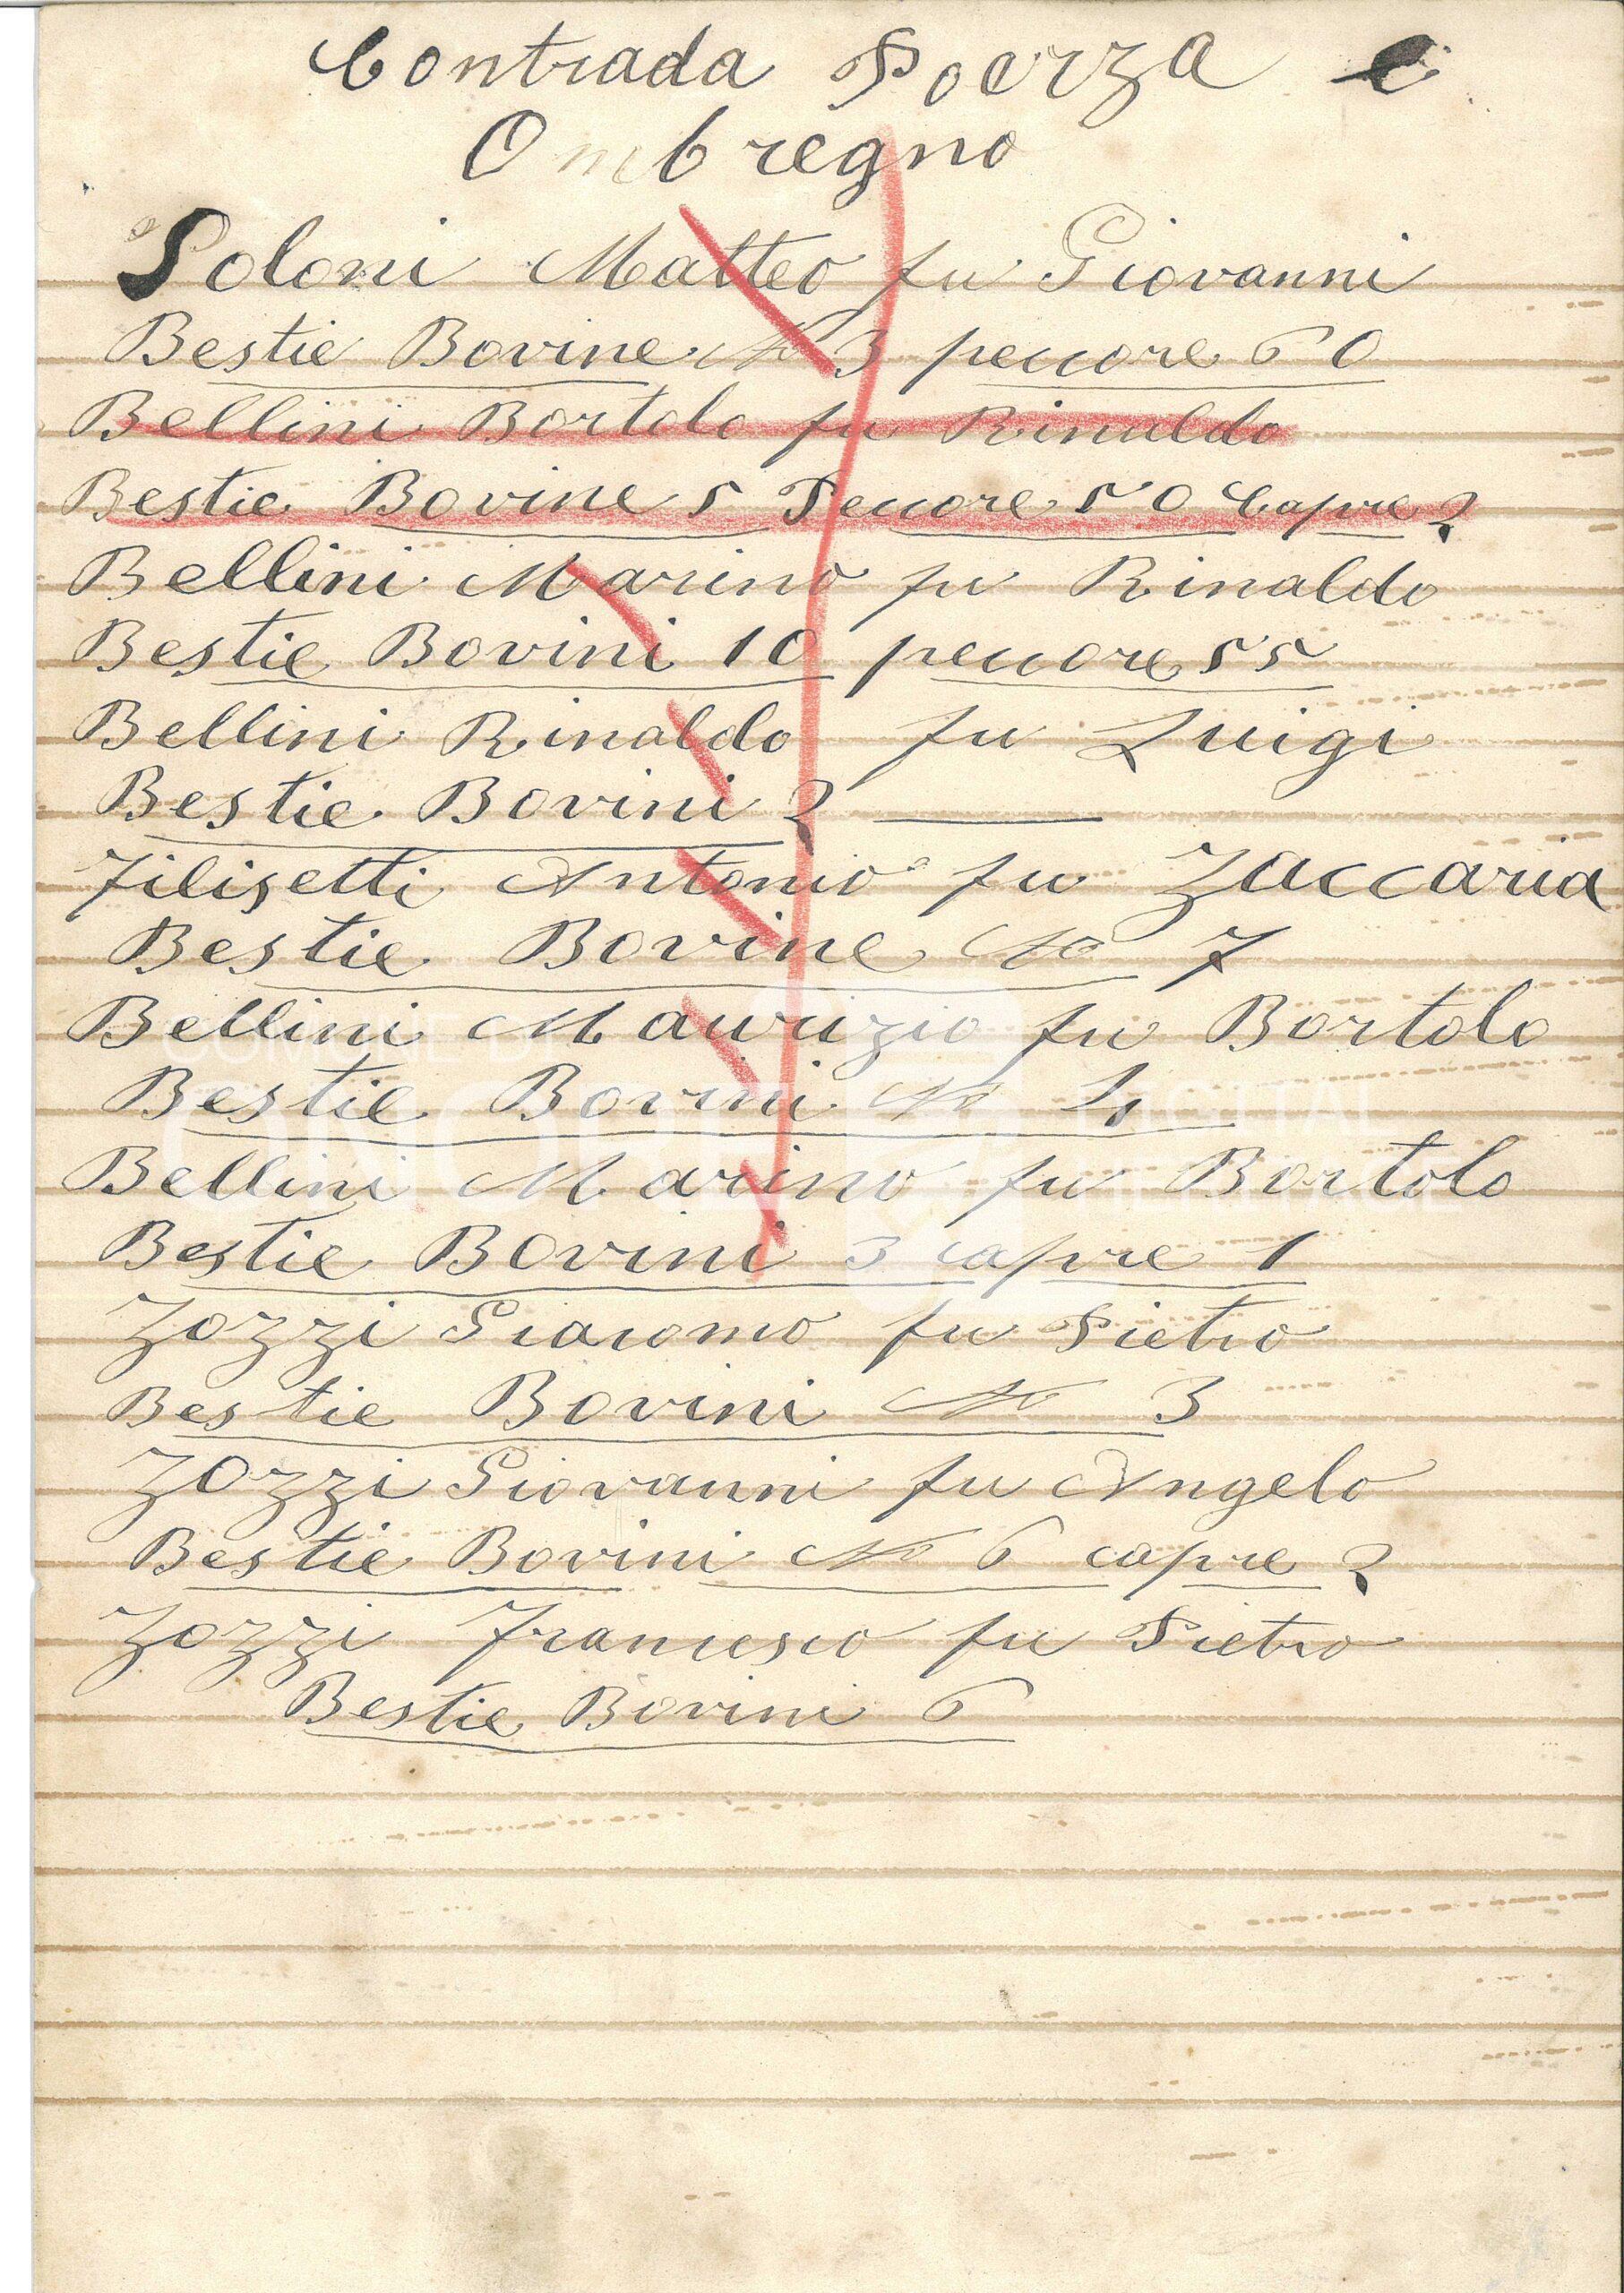 Contrada Poerza e
Ombregno
Poloni Matteo fu Giovanni
Bestie Bovine No 3 pecore 60
Bellini Bortolo fu Rinaldo
Bestie Bovine 5 Pecore 50 Capre 2
Bellini Marino fu Rinaldo
Bestie Bovini 10 pecore 55
Bellini Rinaldo fu Luigi
Bestie Bovini 2
Filisetti Antonio fu Zaccaria
Bestie Bovine No 7
Bellini Maurizio fu Bortolo
Bestie Bovini No 4
Bellini Marino fu Bortolo
Bestie Bovini 3 capre 1
Zozzi Giacomo fu Pietro
Bestie Bovini No 3
Zozzi Giovanni fu Angelo
Bestie Bovini No 6 capre 2
Zozzi Francesco fu Pietro
Bestie Bovini 6